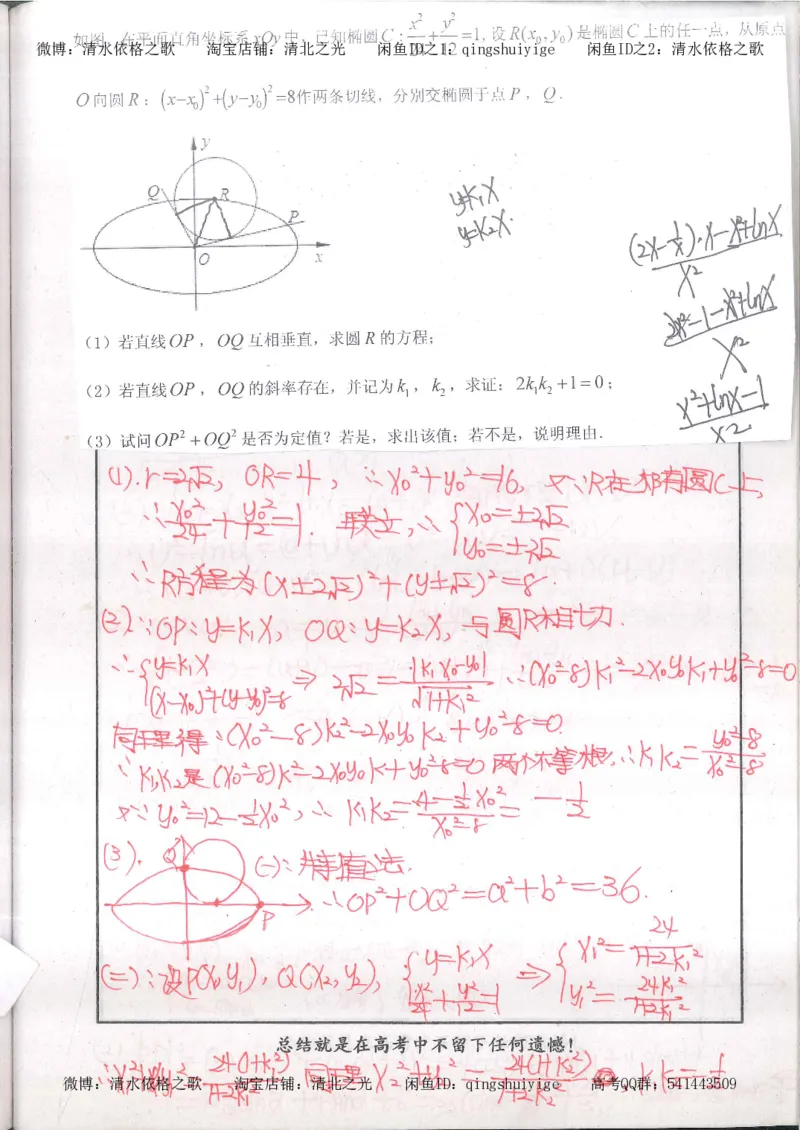 如图，在平面直角坐标系xOy中，已知椭圆C：x²/24+y²/12=1，设R(x₀,y₀)是椭圆C上的任一点，从原点
微博：清水依格之歌 淘宝店铺：清北之光 闲鱼ID之1：qingshuiyige 闲鱼ID之2：清水依格之歌
O向圆R：(x-x₀)²+(y-y₀)²=8作两条切线，分别交椭圆于点P，Q.
y
Q R P
O x
y=k₁x
y=k₂x.
(2x-1/x)·x-x²+lnx / x²
2x²-1-x²+lnx / x²
x²+lnx-1 / x²
(1)若直线OP，OQ互相垂直，求圆R的方程；
(2)若直线OP，OQ的斜率存在，并记为k₁，k₂，求证：2k₁k₂+1=0；
(3)试问OP²+OQ²是否为定值？若是，求出该值；若不是，说明理由.
(1).r=2√2，OR=4，∴x₀²+y₀²=16，又∵R在椭圆C上，
∴x₀²/24+y₀²/12=1 联立，∴{x₀=±2√2
y₀=±2√2
∴R方程为(x±2√2)²+(y±√2)²=8.
(2)∵OP：y=k₁x，OQ：y=k₂x，与圆R相切.
∴{y=k₁x
(x-x₀)²+(y-y₀)²=8 ⇒ 2√2=|k₁x₀-y₀|/√(1+k₁²) ∴(x₀²-8)k₁²-2x₀y₀k₁+y₀²-8=0
同理得：(x₀²-8)k₂²-2x₀y₀k₂+y₀²-8=0.
∵k₁k₂是(x₀²-8)k²-2x₀y₀k+y₀²-8=0两个不等根，∴k₁k₂=y₀²-8/x₀²-8
又∵y₀²=12-½x₀²，∴k₁k₂=4-½x₀²/x₀²-8=-½
(3).
Q
P
(一)：特值法.
∴OP²+OQ²=a²+b²=36.
(二)：设P(x₁,y₁)，Q(x₂,y₂)，{y=k₁x
x²/24+y²/12=1 ⇒ {x₁²=24/1+2k₁²
y₁²=24k₁²/1+2k₁²
总结就是在高考中不留下任何遗憾！
∴x₁²+y₁²=24(1+k₁²)/1+2k₁² 同理x₂²+y₂²=24(1+k₂²)/1+2k₂²
微博：清水依格之歌 淘宝店铺：清北之光 闲鱼ID：qingshuiyige 高考QQ群：541443509